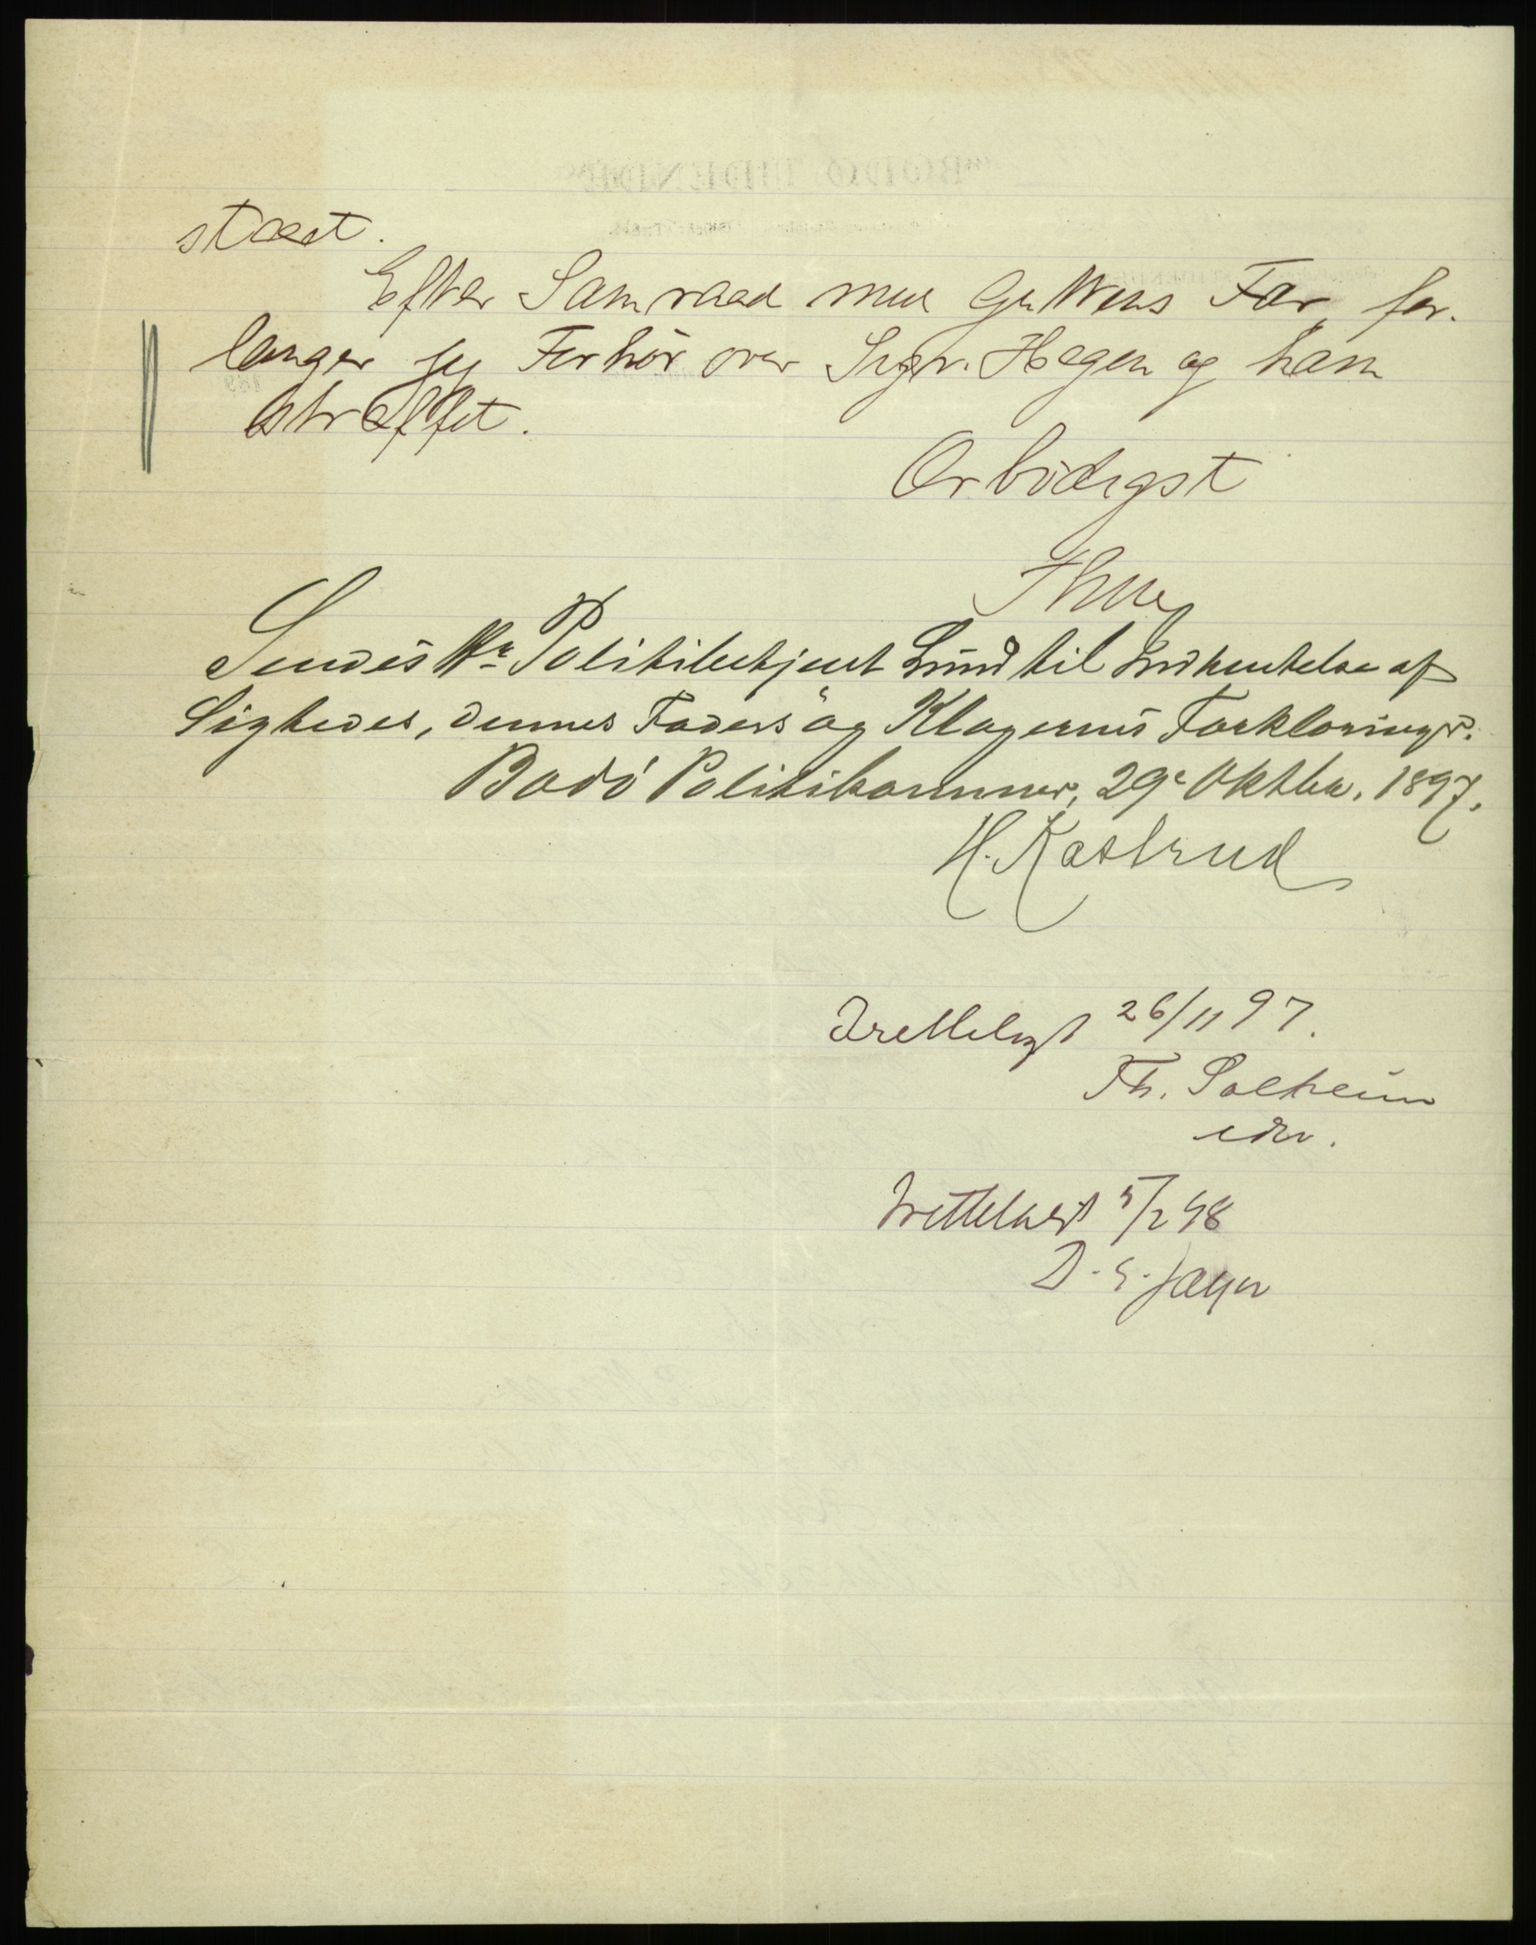 stæst.
Efter Samraad med Guttens Far, for-
langer jeg Forhör over Sigv. Hagen og ham
straffet.
Ærbödigst
Thue
Sendes Hr Politibetjent Lund til Indhentelse af
Sigtedes, dennes Faders og Klagerens Forklaringer.
Bodö Politikammer, 29e Oktbr. 1897.
H. Kastrud
Irettelagt 26/11 97.
Th. Solheim
edsv.
Irettelagt 5/2 98
D. S. Jager